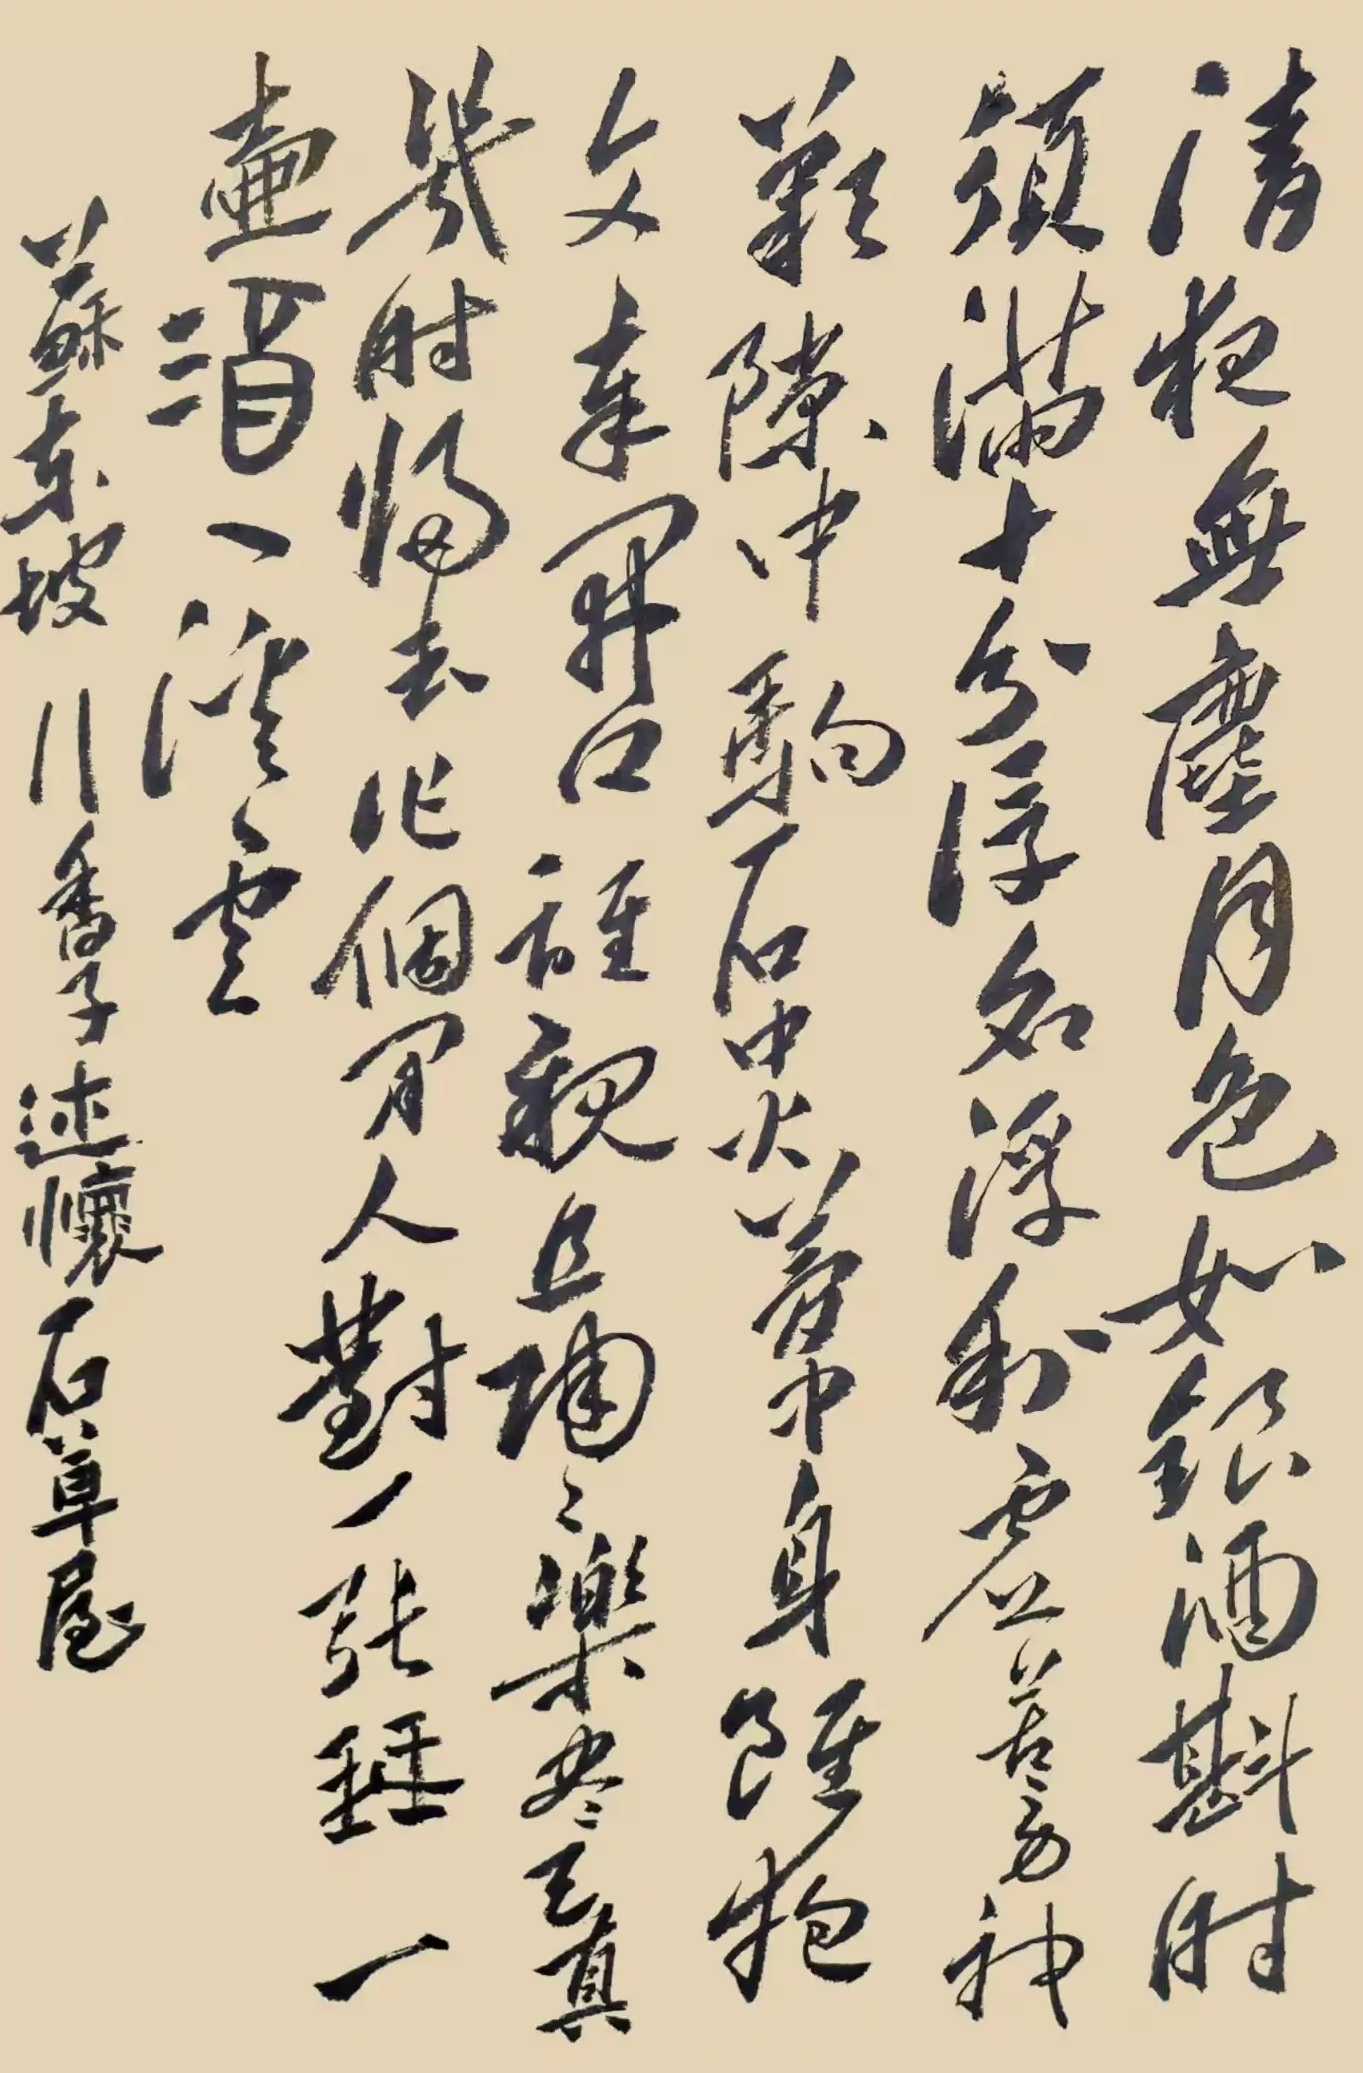 清夜無塵月色如銀酒斟時
須滿十分浮名浮利虛苦勞神
歎隙中駒石中火夢中身雖抱
文章開口誰親且陶々樂尽天真
幾時歸去作個閒人對一張琴一
壺酒一溪雲
蘇東坡行香子述懷石草屋